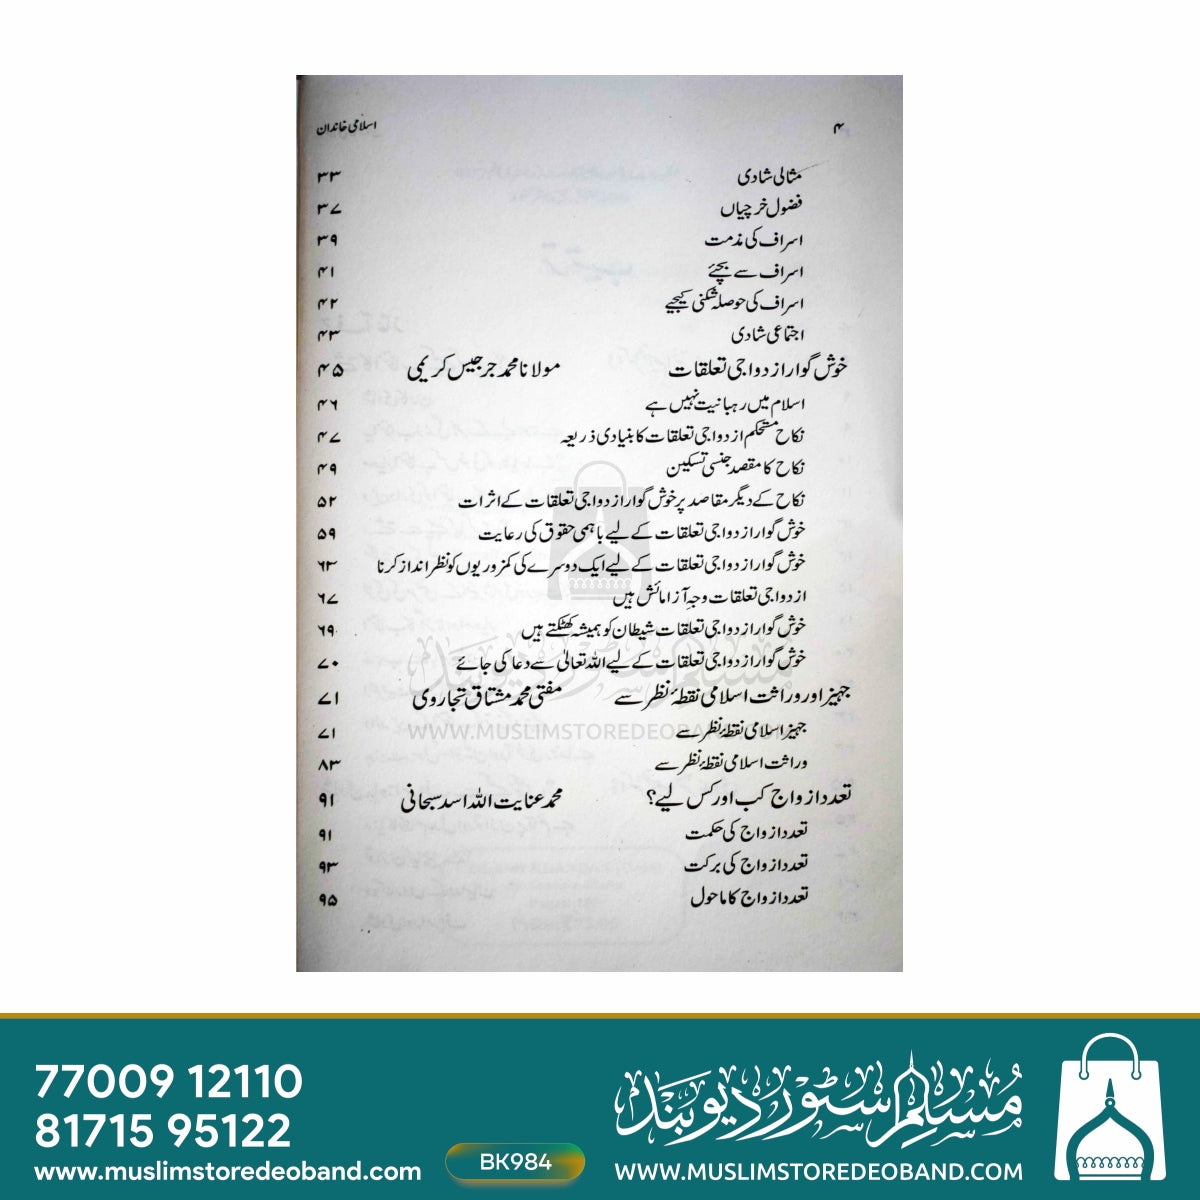 ۴ اسلامی خاندان
مثالی شادی ۳۳
فضول خرچیاں ۳۷
اسراف کی مذمت ۳۹
اسراف سے بچئے ۴۱
اسراف کی حوصلہ شکنی کیجیے ۴۲
اجتماعی شادی ۴۳
خوش گوار ازدواجی تعلقات مولانا محمد جرجیس کریمی ۴۵
اسلام میں رہبانیت نہیں ہے ۴۶
نکاح مستحکم ازدواجی تعلقات کا بنیادی ذریعہ ۴۷
نکاح کا مقصد جنسی تسکین ۴۹
نکاح کے دیگر مقاصد پر خوش گوار ازدواجی تعلقات کے اثرات ۵۲
خوش گوار ازدواجی تعلقات کے لیے باہمی حقوق کی رعایت ۵۹
خوش گوار ازدواجی تعلقات کے لیے ایک دوسرے کی کمزوریوں کو نظر انداز کرنا ۶۳
ازدواجی تعلقات وجہِ آزمائش ہیں ۶۷
خوش گوار ازدواجی تعلقات شیطان کو ہمیشہ کھٹکتے ہیں ۶۹
خوش گوار ازدواجی تعلقات کے لیے اللہ تعالیٰ سے دعا کی جائے ۷۰
جہیز اور وراثت اسلامی نقطۂ نظر سے مفتی محمد مشتاق تجاروی ۷۱
جہیز اسلامی نقطۂ نظر سے ۷۱
وراثت اسلامی نقطۂ نظر سے ۸۳
تعدد ازواج کب اور کس لیے؟ محمد عنایت اللہ اسد سبحانی ۹۱
تعدد ازواج کی حکمت ۹۱
تعدد ازواج کی برکت ۹۳
تعدد ازواج کا ماحول ۹۵
مسلم سٹور دیوبند
WWW.MUSLIMSTOREDEOBAND.COM
77009 12110
81715 95122
www.muslimstoredeoband.com
BK984
مسلم سٹور دیوبند
WWW.MUSLIMSTOREDEOBAND.COM